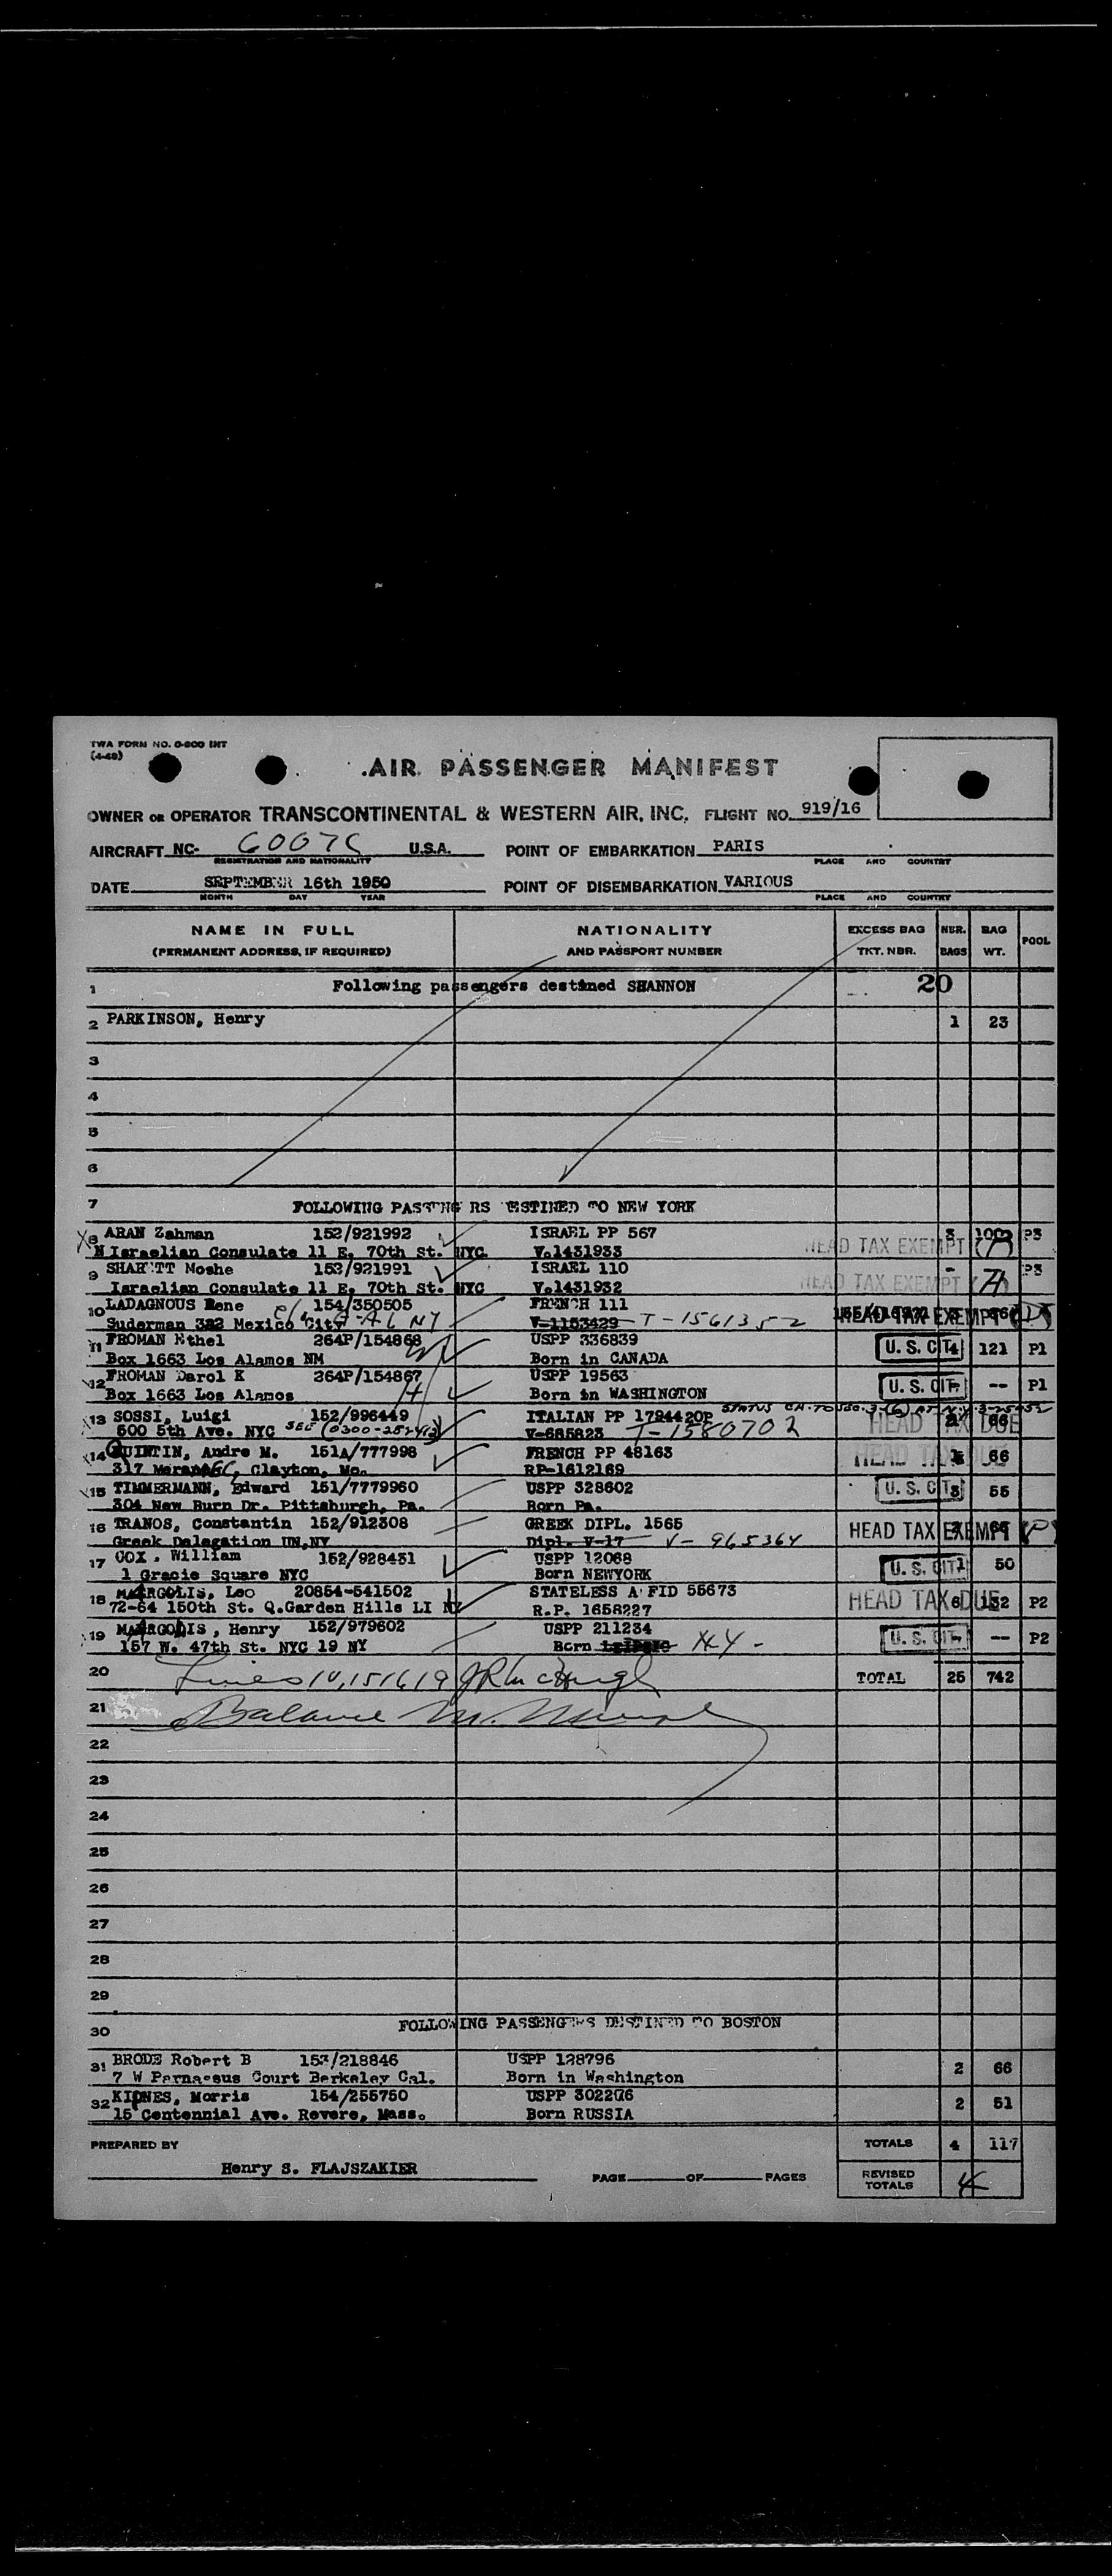 TWA FORM NO. 0-800 INT
(4-48)
AIR PASSENGER MANIFEST
OWNER OR OPERATOR TRANSCONTINENTAL & WESTERN AIR, INC. FLIGHT NO. 919/16
AIRCRAFT NC- 6007C U.S.A. POINT OF EMBARKATION PARIS
REGISTRATION AND NATIONALITY PLACE AND COUNTRY
DATE SEPTEMBER 16th 1950 POINT OF DISEMBARKATION VARIOUS
MONTH DAY YEAR PLACE AND COUNTRY
NAME IN FULL NATIONALITY EXCESS BAG NBR. BAG POOL
(PERMANENT ADDRESS, IF REQUIRED) AND PASSPORT NUMBER TKT. NBR. BAGS WT.
1 Following passengers destined SHANNON 20
2 PARKINSON, Henry 1 23
3
4
5
6
7 FOLLOWING PASSENG RS ESTINED TO NEW YORK
8 ARAN Zahman 152/921992 ISRAEL PP 567 3 100 P3
Israelian Consulate 11 E. 70th St. NYC V.1431933 HEAD TAX EXEMPT
9 SHARETT Moshe 153/921991 ISRAEL 110 - P3
Israelian Consulate 11 E. 70th St. NYC V.1431932 HEAD TAX EXEMPT
10 LADAGNOUS Rene 154/350505 FRENCH 111 HEAD TAX EXEMPT
Suderman 322 Mexico City V-1153429 T-1561352
11 FROMAN Ethel 264P/154868 USPP 336839 U. S. CIT. 4 121 P1
Box 1663 Los Alamos NM Born in CANADA
12 FROMAN Darol K 264P/154867 USPP 19563 U. S. CIT. -- P1
Box 1663 Los Alamos Born in WASHINGTON
13 SOSSI, Luigi 152/996449 ITALIAN PP 1794420P HEAD TAX DUE 2 66
500 5th Ave. NYC SEE V-685823 T-1580702
14 QUINTIN, Andre M. 151A/777998 FRENCH PP 48163 HEAD TAX DUE 66
317 Clayton, Mo. RP-1612169
15 TIMMERMANN, Edward 151/7779960 USPP 328602 U. S. CIT. 3 55
304 New Burn Dr. Pittsburgh, Pa. Born Pa.
16 TRANOS, Constantin 152/912308 GREEK DIPL. 1565 HEAD TAX EXEMPT
Greek Delegation UN,NY Dipl. V-17 V- 965364
17 COX, William 152/928431 USPP 12068 U. S. CIT. 1 50
1 Gracie Square NYC Born NEWYORK
18 MARGOLIS, Leo 20854-541502 STATELESS A FID 55673 HEAD TAX DUE 6 132 P2
72-64 150th St. Q.Garden Hills LI NY R.P. 1658227
19 MARGOLIS, Henry 152/979602 USPP 211234 U. S. CIT. -- P2
157 W. 47th St. NYC 19 NY Born N.Y.-
20 Lines 10,15,16,19 TOTAL 25 742
21 Balance M.
22
23
24
25
26
27
28
29
30 FOLLOWING PASSENGERS DESTINED TO BOSTON
31 BRODE Robert B 153/218846 USPP 128796 2 66
7 W Parnassus Court Berkeley Cal. Born in Washington
32 KIPNES, Morris 154/255750 USPP 302276 2 51
15 Centennial Ave. Revere, Mass. Born RUSSIA
PREPARED BY TOTALS 4 117
Henry S. FLAJSZAKIER PAGE OF PAGES REVISED TOTALS 4